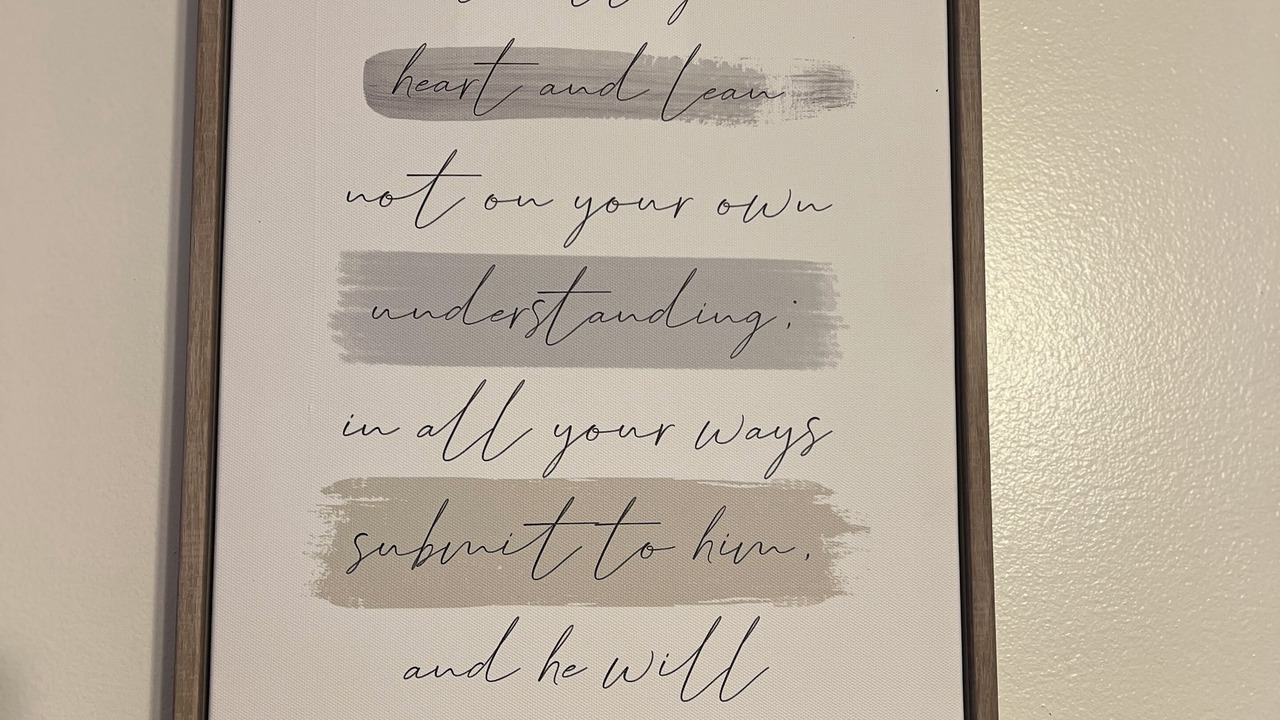 heart and lean
not on your own
understanding;
in all your ways
submit to him,
and he will